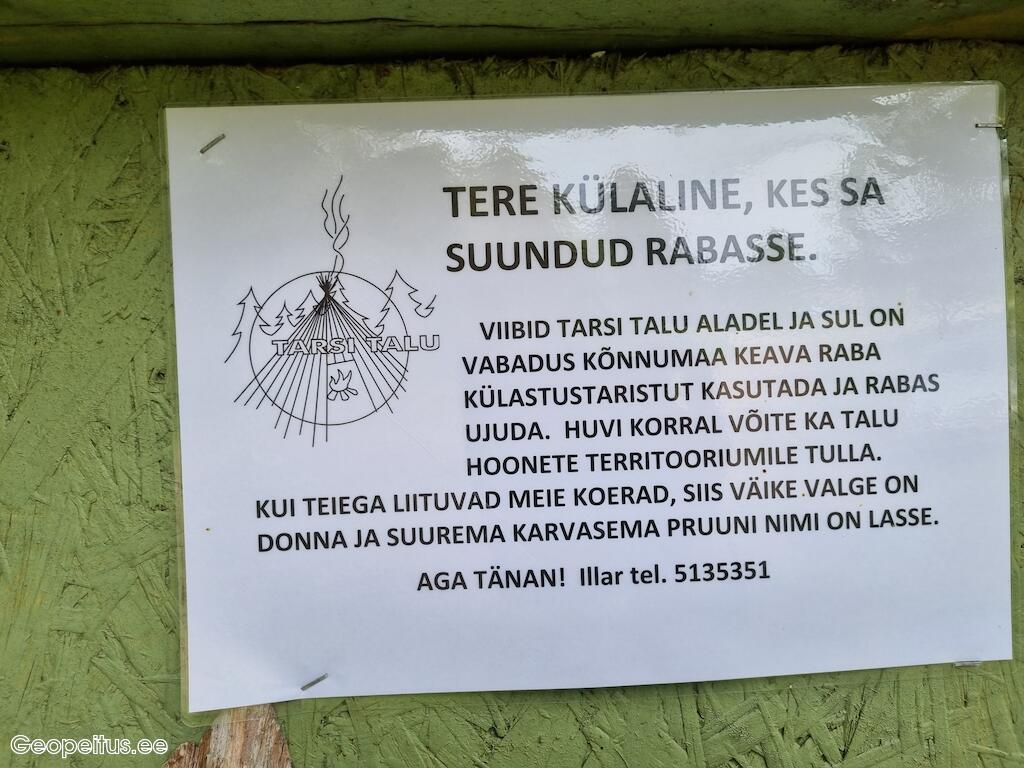 TERE KÜLALINE, KES SA
SUUNDUD RABASSE.
TARSI TALU
VIIBID TARSI TALU ALADEL JA SUL ON
VABADUS KÕNNUMAA KEAVA RABA
KÜLASTUSTARISTUT KASUTADA JA RABAS
UJUDA. HUVI KORRAL VÕITE KA TALU
HOONETE TERRITOORIUMILE TULLA.
KUI TEIEGA LIITUVAD MEIE KOERAD, SIIS VÄIKE VALGE ON
DONNA JA SUUREMA KARVASEMA PRUUNI NIMI ON LASSE.
AGA TÄNAN! Illar tel. 5135351
Geopeitus.ee